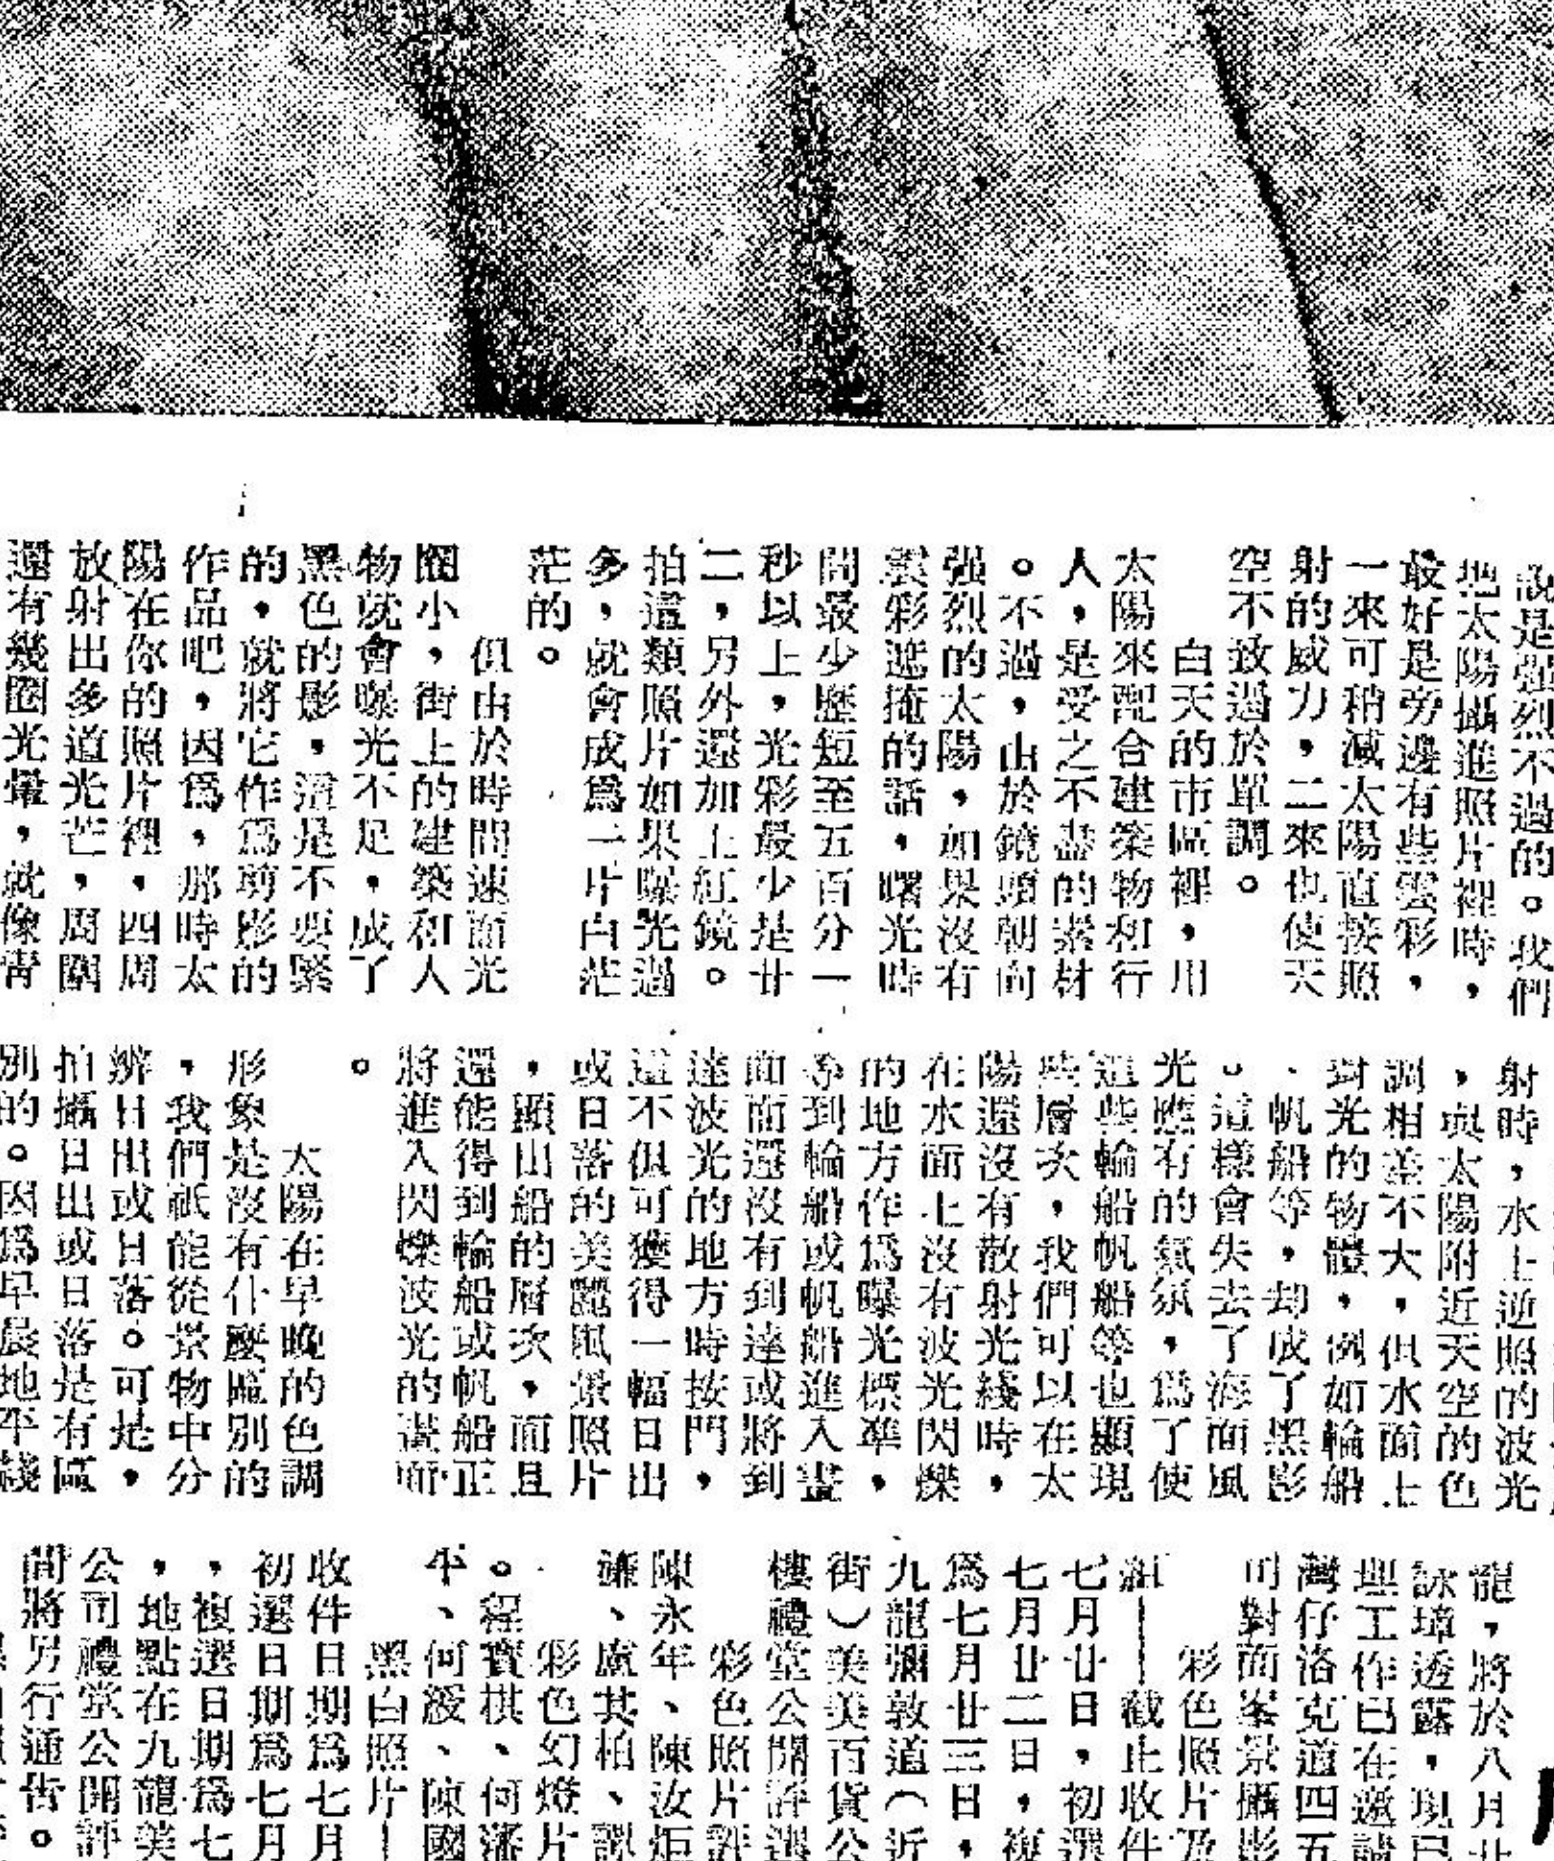 說是强烈不過的。我們
地太陽攝進照片裡時，
最好是旁邊有些雲彩，
一來可稍減太陽直接照
射的威力，二來也使天
空不致過於單調。
白天的市區裡，用
太陽來配合建築物和行
人，是受之不盡的素材
。不過，由於鏡頭朝向
强烈的太陽，如果沒有
雲彩遮掩的話，曙光時
間最少壓短至五百分一
秒以上，光彩最少是廿
二，另外還加上紅鏡。
拍這類照片如果曝光過
多，就會成爲一片白茫
茫的。
但由於時間速而光
圈小，街上的建築和人
物就會曝光不足，成了
黑色的影，這是不要緊
的，就將它作爲剪影的
作品吧，因爲，那時太
陽在你的照片裡，四周
放射出多道光芒，周圍
還有幾圈光暈，就像青
射時，水上逆照的波光
，與太陽附近天空的色
調相差不大，但水面上
對光的物體，例如輪船
、帆船等，却成了黑影
。這樣會失去了海面風
光應有的氣氛，爲了使
這些輪船帆船等也顯現
些層次，我們可以在太
陽還沒有散射光綫時，
在水面上沒有波光閃爍
的地方作爲曝光標準，
等到輪船或帆船進入畫
面而還沒有到達或將到
達波光的地方時按門，
這不但可獲得一幅日出
或日落的美麗風景照片
，顯出船的層次，而且
還能得到輪船或帆船正
將進入閃爍波光的畫面
。
太陽在早晚的色調
形象是沒有什麼區別的
，我們祇能從景物中分
辨日出或日落。可是，
拍攝日出或日落是有區
別的。因爲早晨地平綫
龍，將於八月廿
詠璋透露，現已
理工作已在邀請
灣仔洛克道四五
司對面峯景攝影
彩色照片及
組——截止收件
七月廿日，初選
七月廿二日，複
爲七月廿三日，
九龍彌敦道（近
街）美美百貨公
樓禮堂公開評選
彩色照片評
陳永年、陳汝炬
濂、盧其柏、譚
彩色幻燈片
。程寶棋、何藩
平、何浚、陳國
黑白照片—
收件日期爲七月
初選日期爲七月
，複選日期爲七
，地點在九龍美
公司禮堂公開評
間將另行通告。